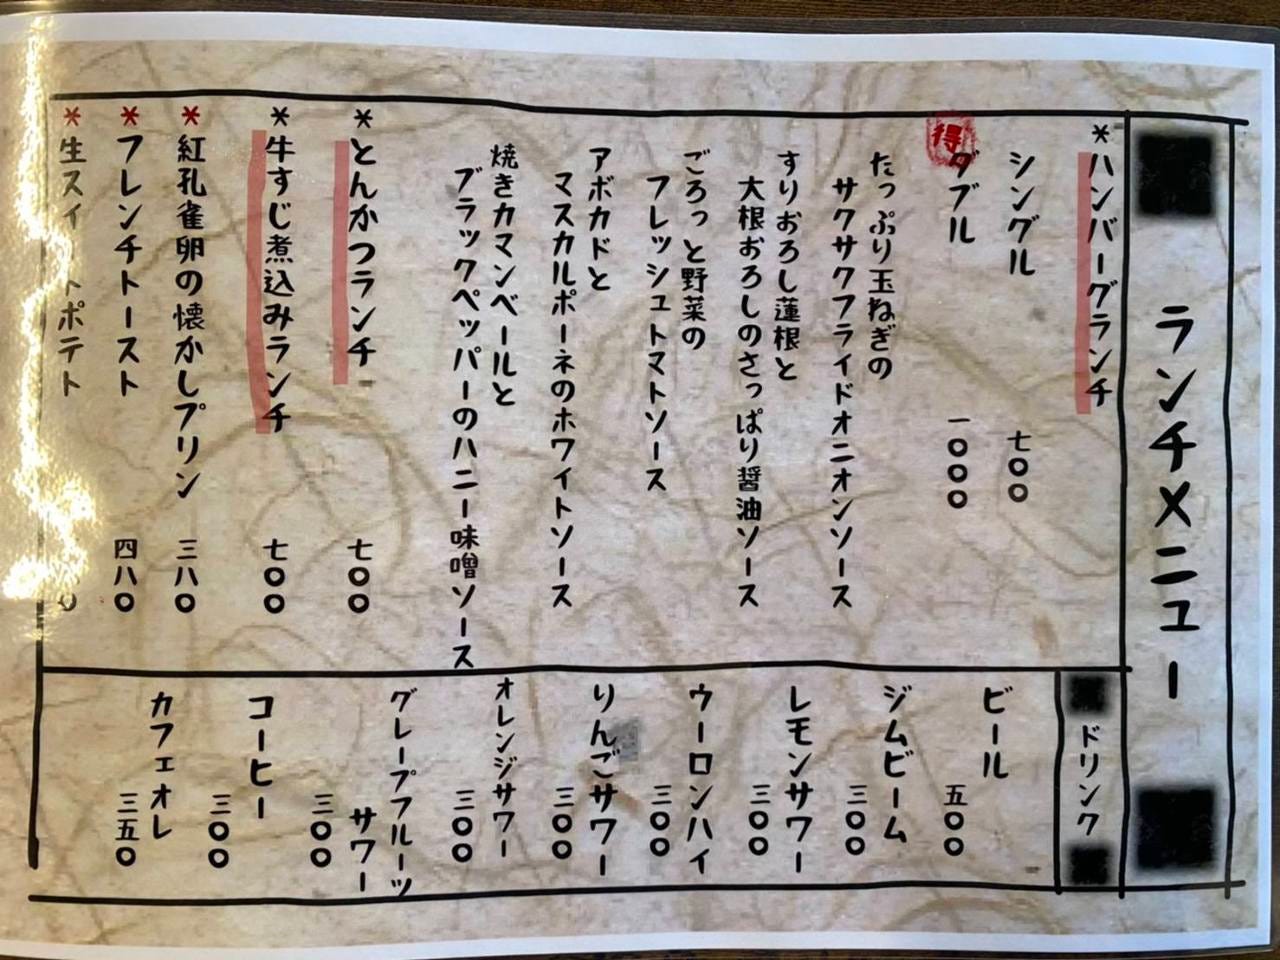 ランチメニュー
*ハンバーグランチ
シングル 七〇〇
得
ダブル 一〇〇〇
たっぷり玉ねぎの
サクサクフライドオニオンソース
すりおろし蓮根と
大根おろしのさっぱり醤油ソース
ごろっと野菜の
フレッシュトマトソース
アボカドと
マスカルポーネのホワイトソース
焼きカマンベールと
ブラックペッパーのハニー味噌ソース
*とんかつランチ 七〇〇
*牛すじ煮込みランチ 七〇〇
*紅孔雀卵の懐かしプリン 三八〇
*フレンチトースト 四八〇
*生スイートポテト
ドリンク
ビール
五〇〇
ジムビーム
三〇〇
レモンサワー
三〇〇
ウーロンハイ
三〇〇
りんごサワー
三〇〇
オレンジサワー
三〇〇
グレープフルーツ
サワー
三〇〇
コーヒー
三〇〇
カフェオレ
三五〇